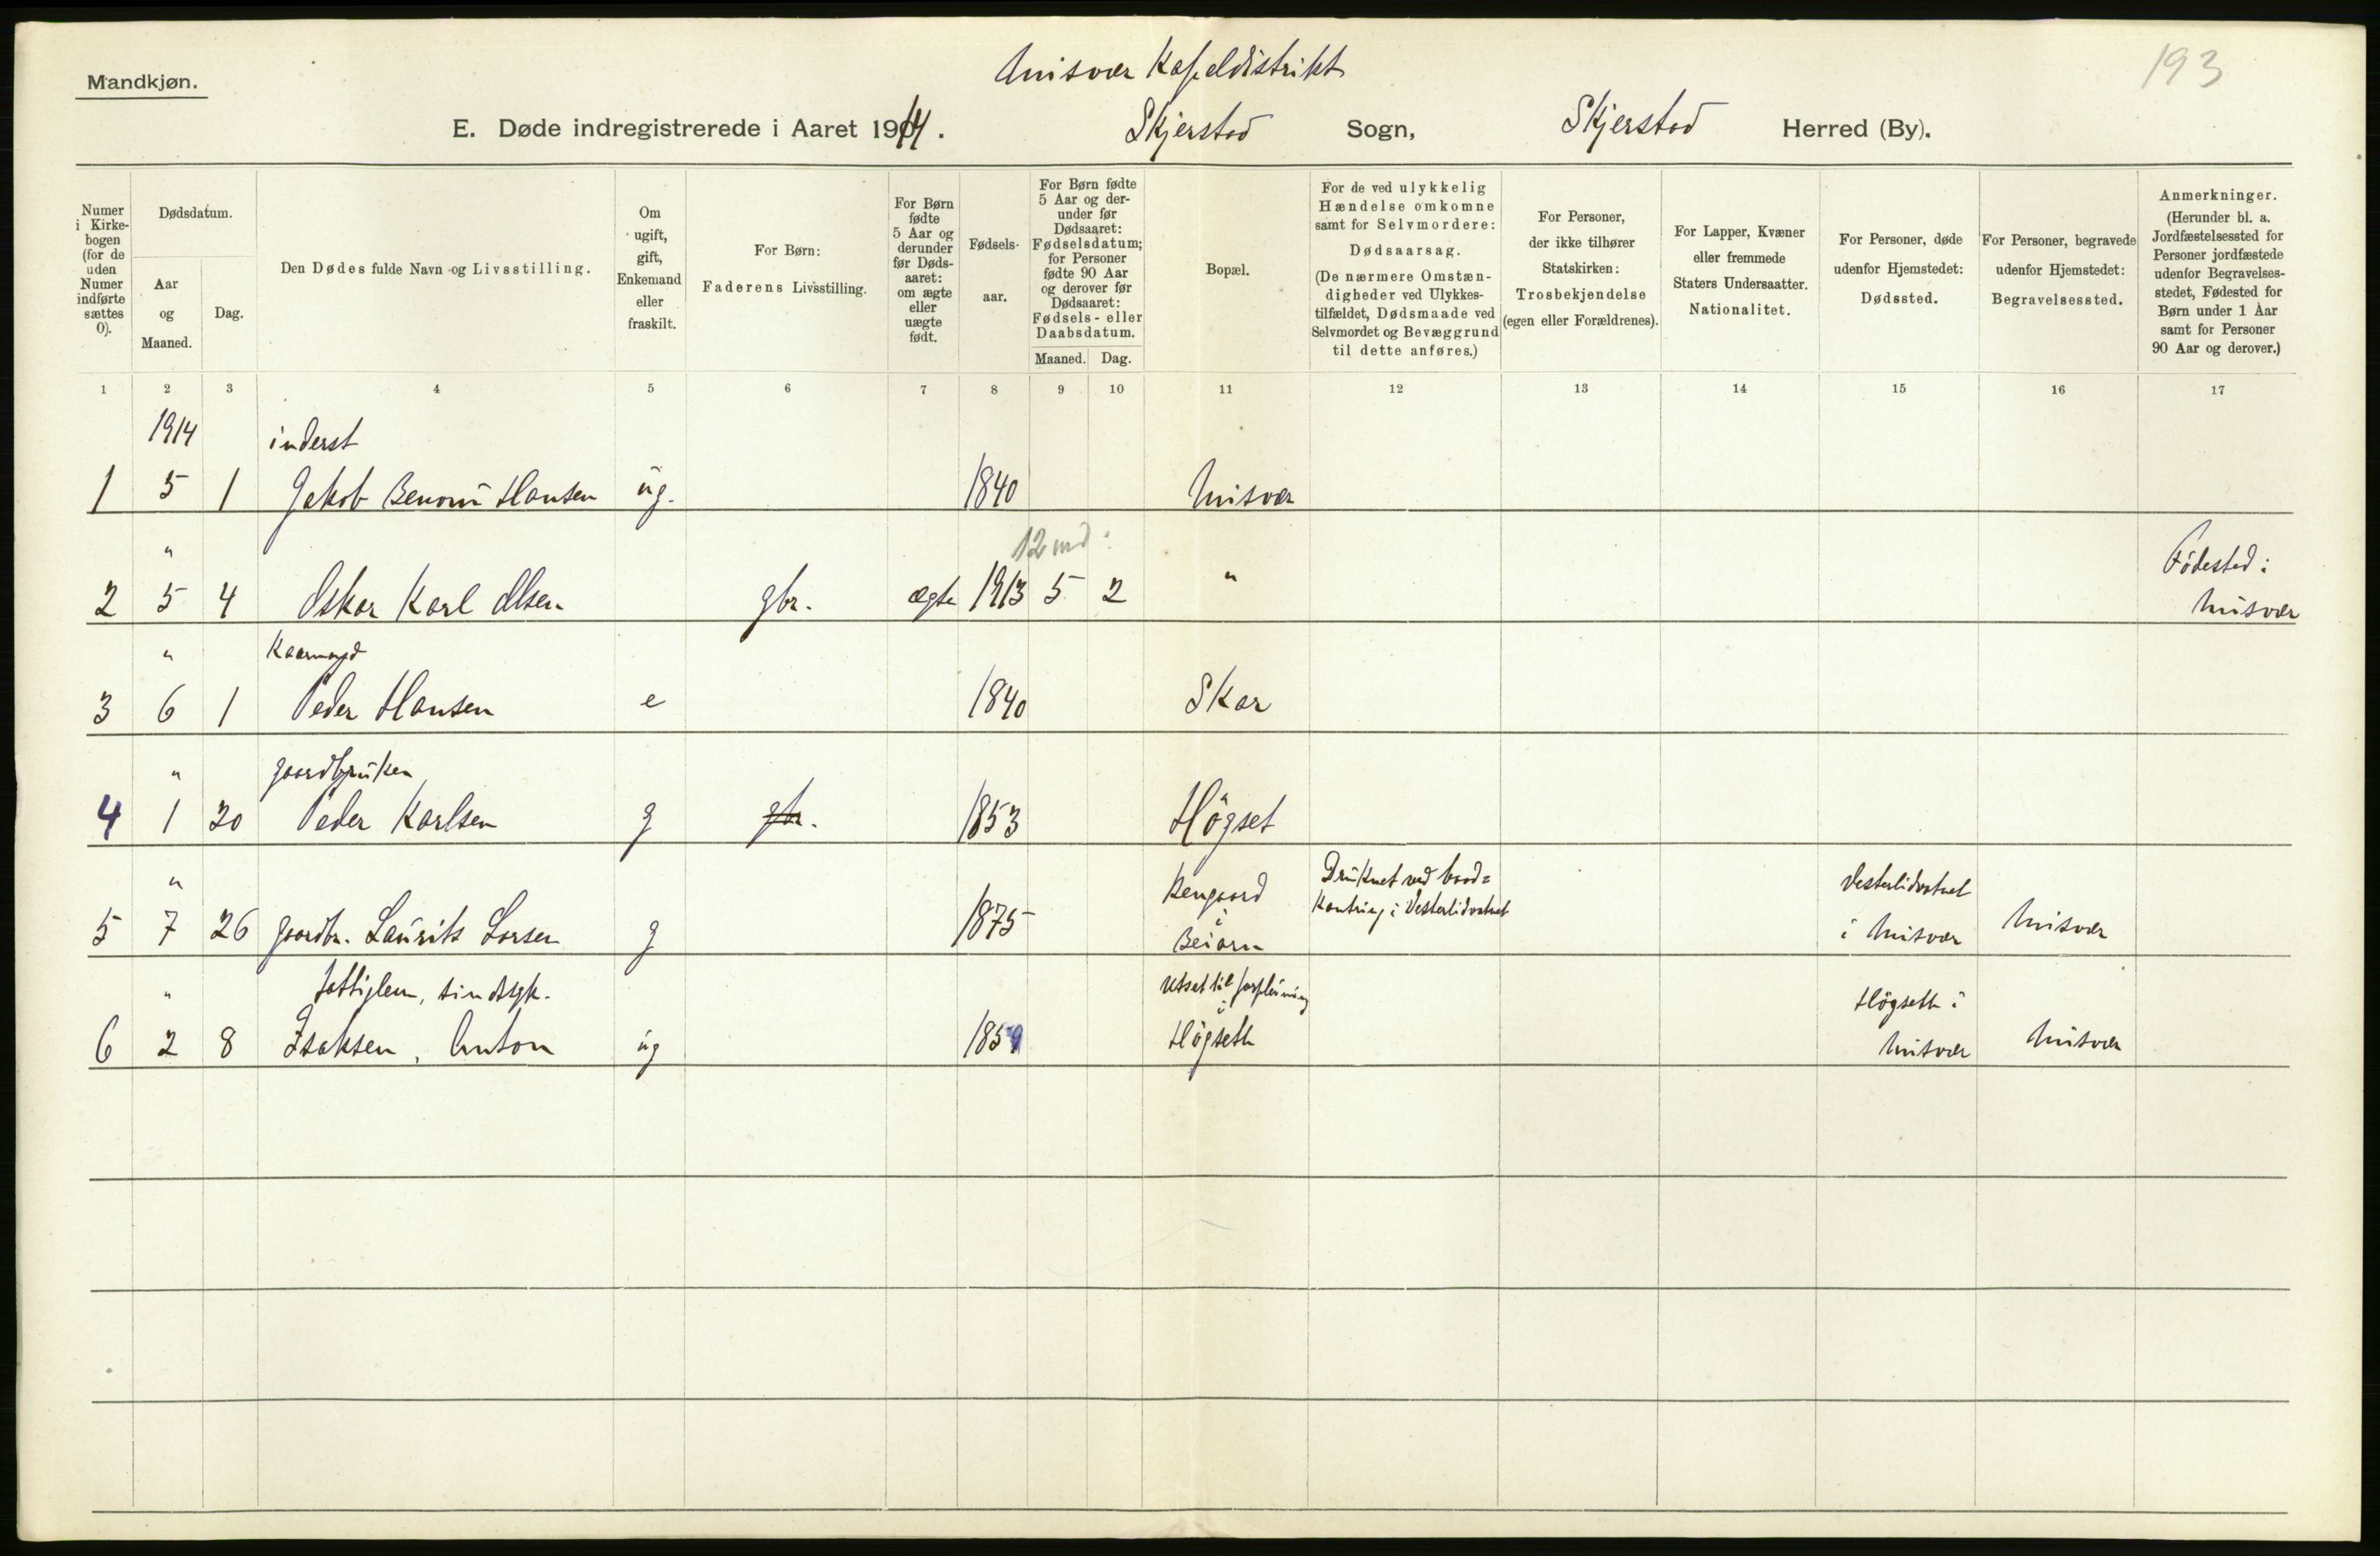 Mandkjøn.
Misvær Kapeldistrikt
193
E. Døde indregistrerede i Aaret 1914. Skjerstad Sogn, Skjerstad Herred (By).
Numer i Kirkebogen (for de uden Numer indførte sættes 0).
Dødsdatum.
Aar og Maaned.
Dag.
Den Dødes fulde Navn og Livsstilling.
Om ugift, gift, Enkemand eller fraskilt.
For Børn: Faderens Livsstilling.
For Børn fødte 5 Aar og derunder før Dødsaaret: om ægte eller uægte født.
Fødselsaar.
For Børn fødte 5 Aar og derunder før Dødsaaret: Fødselsdatum; for Personer fødte 90 Aar og derover før Dødsaaret: Fødsels- eller Daabsdatum.
Maaned. Dag.
Bopæl.
For de ved ulykkelig Hændelse omkomne samt for Selvmordere: Dødsaarsag. (De nærmere Omstændigheder ved Ulykkestilfældet, Dødsmaade ved Selvmordet og Bevæggrund til dette anføres.)
For Personer, der ikke tilhører Statskirken: Trosbekjendelse (egen eller Forældrenes).
For Lapper, Kvæner eller fremmede Staters Undersaatter. Nationalitet.
For Personer, døde udenfor Hjemstedet: Dødssted.
For Personer, begravede udenfor Hjemstedet: Begravelsessted.
Anmerkninger. (Herunder bl. a. Jordfæstelsessted for Personer jordfæstede udenfor Begravelsesstedet, Fødested for Børn under 1 Aar samt for Personer 90 Aar og derover.)
1 2 3 4 5 6 7 8 9 10 11 12 13 14 15 16 17
1914 inderst
1 5 1 Jakob Benoni Hansen ug. 1840 Misvær
" 12 md. Födested:
2 5 4 Oskar Karl Olsen gbr. ægte 1913 5 2 " Misvær
" Kaarmand
3 6 1 Peder Hansen e 1840 Skar
" gaardbruker
4 1 20 Peder Karlsen g gbr. 1853 Högset
" Kengaard Druknet ved baad= Vesterlivatnet
5 7 26 gaardbr. Laurits Larsen g 1875 i Beiarn kantring i Vesterlivatnet i Misvær Misvær
" fattiglem, sindssyk. Utsat til forpleining i Högseth i
6 2 8 Isaksen, Anton ug 1859 Högseth Misvær Misvær